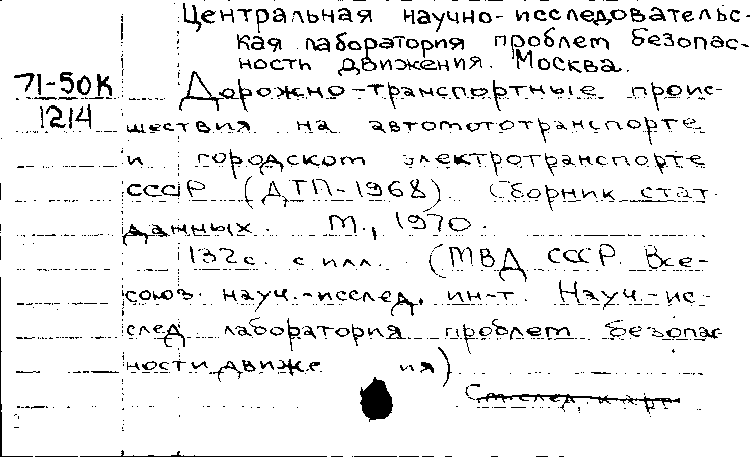 Центральная научно-исследовательс-
кая лаборатория проблем безопас-
ности движения. Москва.
71-50К
1214
Дорожно-транспортные проис-
шествия на автомототранспорте
и городском электротранспорте
СССР (ДТП-1968). Сборник стат.
данных. М., 1970.
132с. с илл. (МВД СССР. Все-
союз. науч.-исслед. ин-т. Науч.-ис-
след. лаборатория проблем безопас
ности движе ия)
См след. карт